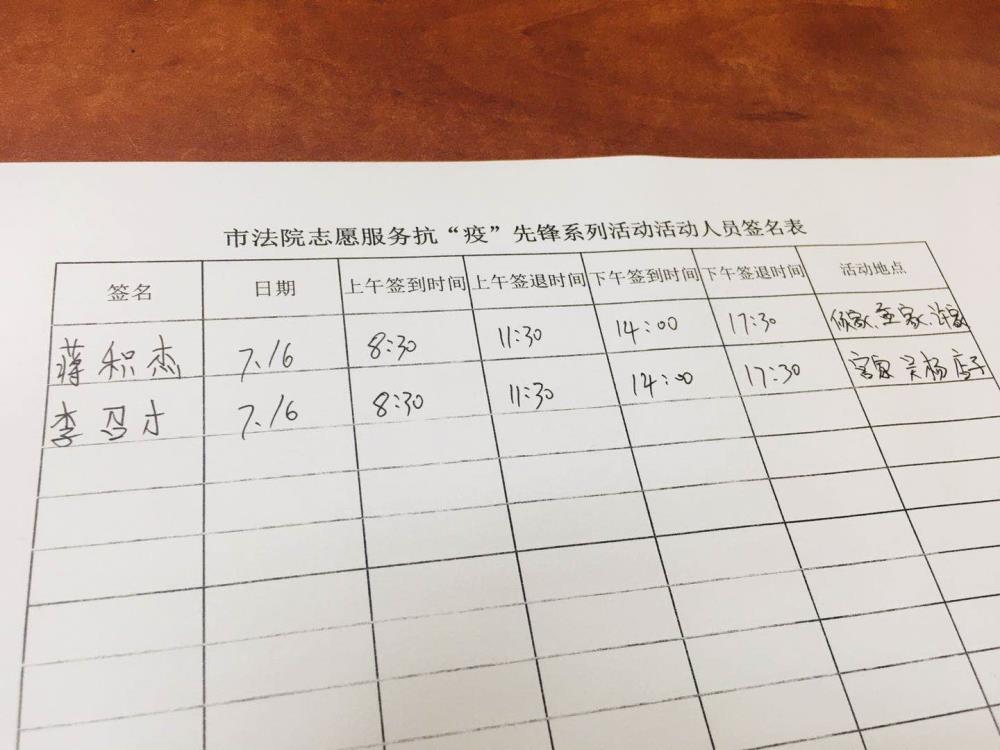 市法院志愿服务抗“疫”先锋系列活动活动人员签名表
签名 日期 上午签到时间 上午签退时间 下午签到时间 下午签退时间 活动地点
蒋积杰 7.16 8:30 11:30 14:00 17:30
李 7.16 8:30 11:30 14:00 17:30 吴杨 店子